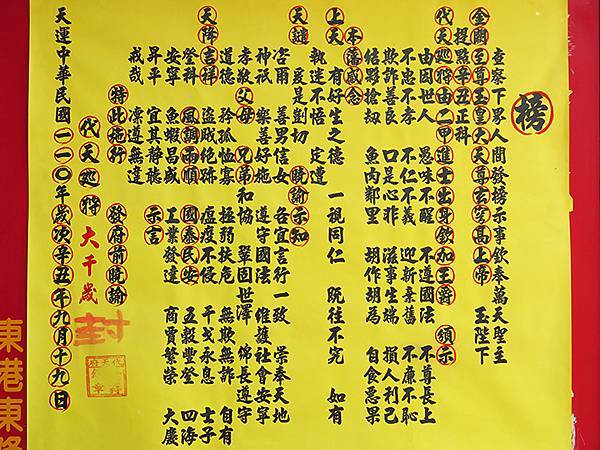 榜
查察下界人間發榜示事欽奉萬天聖主
金闕至尊玉皇大天尊玄穹高上帝 玉陛下
提點辛丑正科
代天巡狩由二甲進士出身欽加王爵 須示
由因世人 愚味不醒 不遵國法 不尊長上
不忠不孝 不仁不義 迎新棄舊 不廉不恥
欺詐善良 口是心非 滋事生端 損人利己
結夥搶劫 魚肉鄰里 胡作胡為 自食惡果
本藩感念
上天有好生之德 一視同仁 既往不究 如有
執迷不悟 定遭
天譴 是剴切 曉諭示知
咨爾 善男信女 各宜言行一致 崇奉天地
神祇 樂善好施 遵守國法 維護社會安寧
孝敬父母 兄弟和協 鞏固世澤 綿長遵守
道德 矜孤恤寡 拯弱扶危 無欺無詐 自有
天降吉祥 盜賊絕跡 瘟疫不侵 干戈永息 士子
登科 風調雨順 國泰民安 五穀豐登 四海
安寧 魚蝦昌盛 工業發達 商賈繁榮 大慶
昇平 宜其靜聽 示言
戒哉 凜遵無違
特此施行 發府前曉諭
代天巡狩 大千歲 封
天運中華民國一一0年歲次辛丑年九月十九日
東港東隆